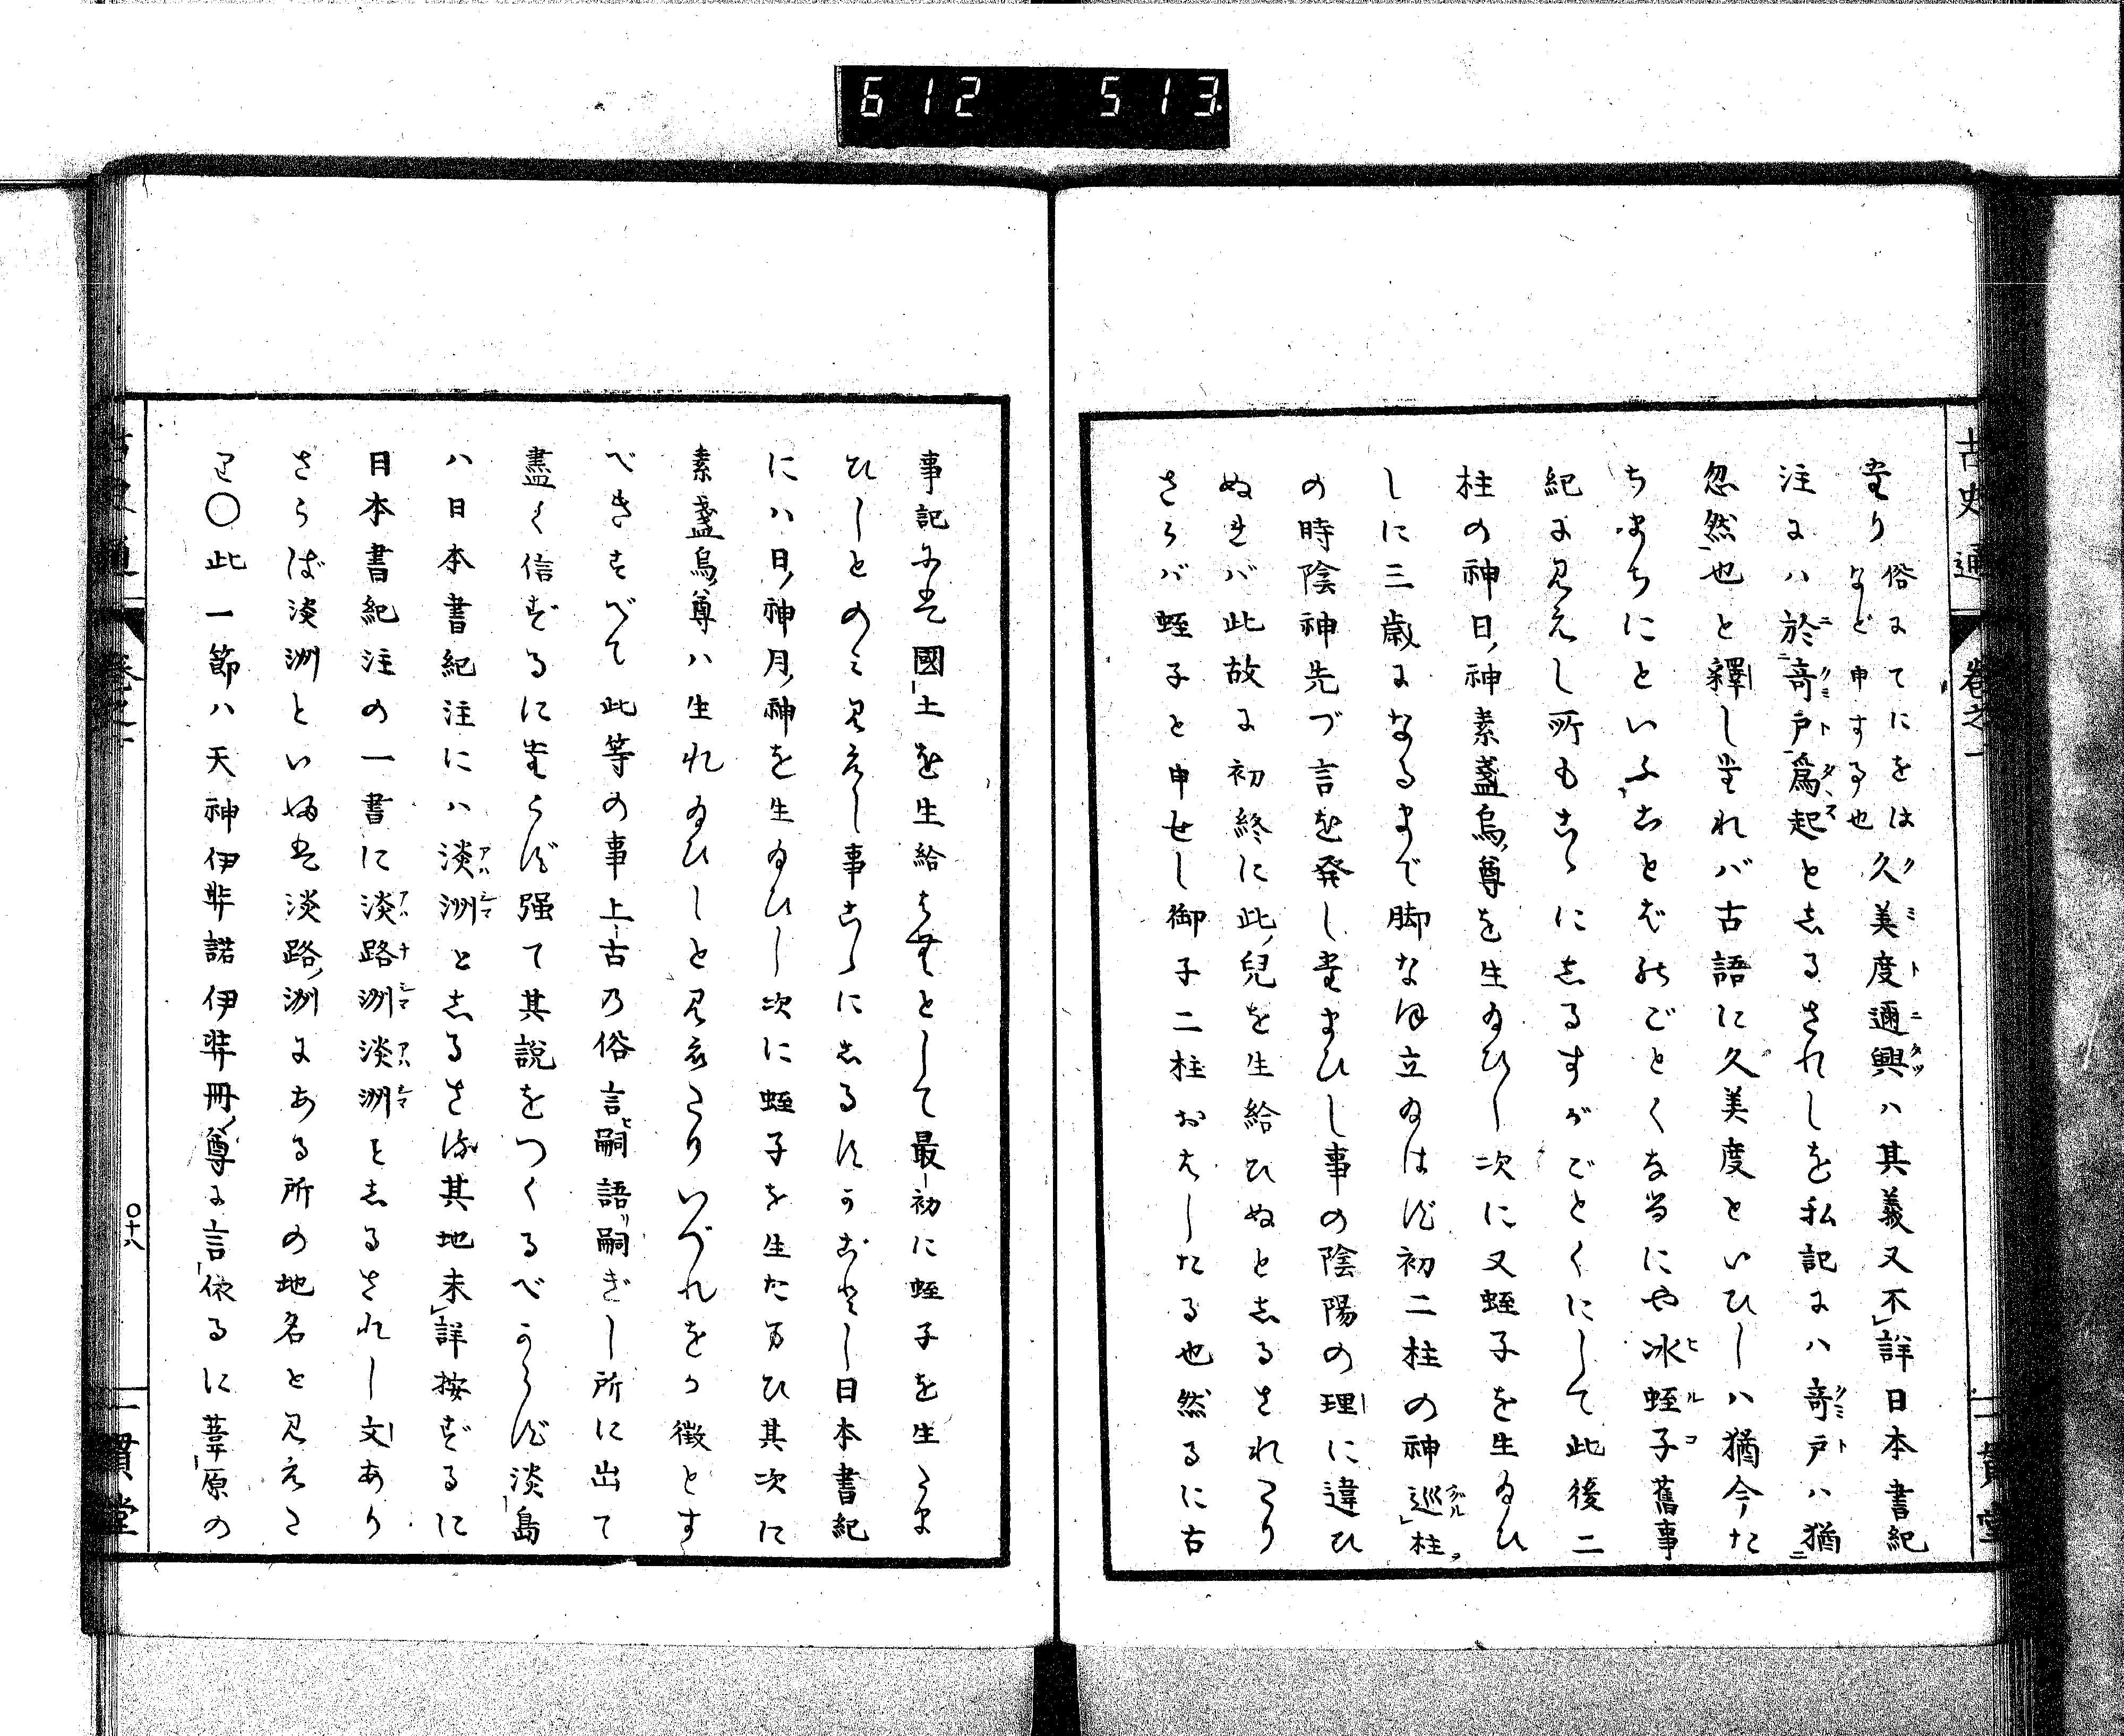 612 513
古史通 卷之一 一貫堂
たり俗にてにをは
など申する也
久美度邇興ハ其義又不詳日本書紀
注にハ於奇戸爲起としるされしを私記にハ奇戸ハ猶
忽然也と釋したれバ古語に久美度といひしハ猶今た
ちまちにといふことばのごとくなるにや氷蛭子舊事
紀に見えし所もこゝにしるすがごとくにして此後二
柱の神日神素盞烏尊を生給ひし次に又蛭子を生給ひ
しに三歳になるまで脚なほ立給はず初二柱の神巡柱
の時陰神先づ言を発したまひし事の陰陽の理に違ひ
ぬれバ此故に初終に此兒を生給ひぬとしるされたり
さらバ蛭子と申せし御子二柱おはしたる也然るに古
事記には國土を生給はむとして最初に蛭子を生たま
ひしとのミ見えし事こゝにしるすがごとし日本書紀
にハ日神月神を生給ひし次に蛭子を生たまひ其次に
素盞烏尊ハ生れ給ひしと見えたりいづれをか徴とす
べきすべて此等の事上古の俗言嗣語嗣ぎし所に出て
盡く信ずるにたらず强て其說をつくるべからず淡島
ハ日本書紀注にハ淡洲としるさる其地未詳按ずるに
日本書紀注の一書に淡路洲淡洲としるされし文あり
さらば淡洲といふは淡路洲にある所の地名と見えた
り〇此一節ハ天神伊弉諾伊弉冊尊に言依るに葦原の
古史通 卷之一 〇十八 一貫堂